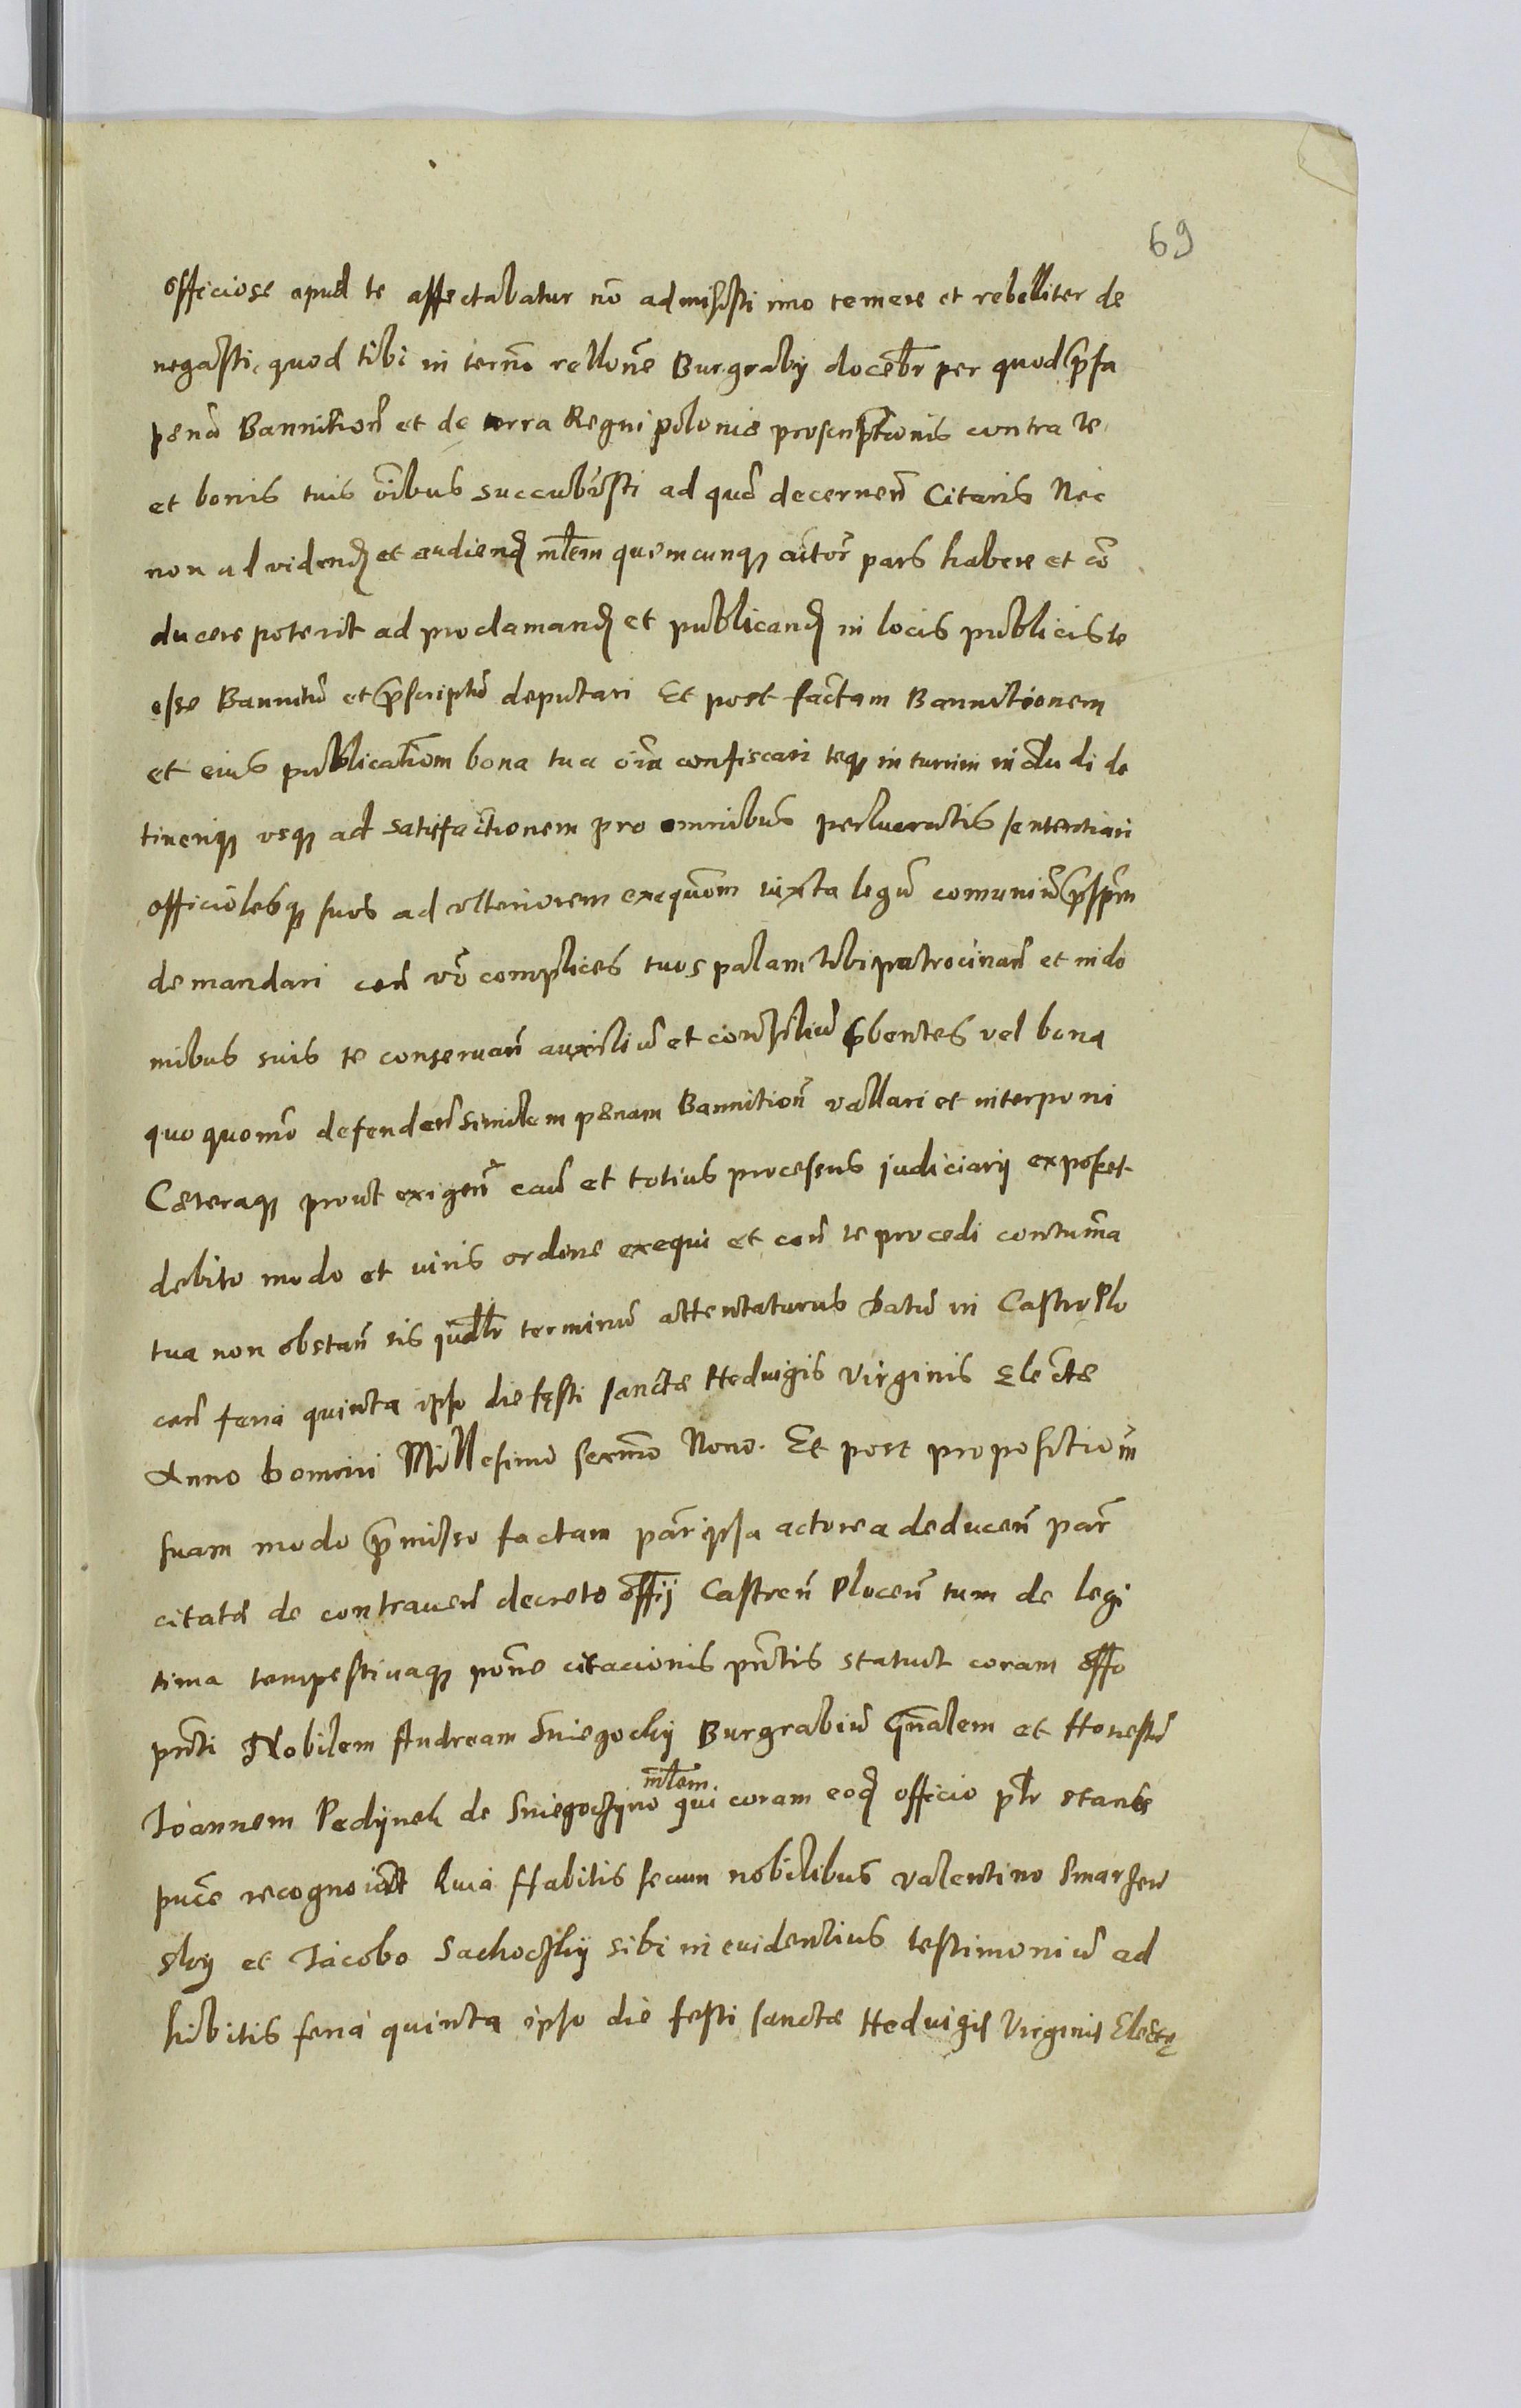 69
officiose apud te affectabatur nō admisisti imo temere et rebelliter de
negasti, quod tibi in termō rellone Burgrabij docebr per quod prfa
pena Bannition et de terra Regni polonie proscriptionis contra te
et bonis tuis oibus succubuisti ad qua decernen Citaris Nec
non ad vidend et audiend mlem quemcunq actor pars habere et co
ducere poterit ad proclamand et publicand in locis publicis te
esse Bannitu et prscriptu deputari Et post factam Bannitionem
et eius publicatiom bona tua oia confiscari teq in turrim includi de
tineriq vsq ad satisfactionem pro omnibus perlucratis sententiari
officialesq suos ad vlteriorem exequom iuxta legu comuniu prsprm
demandari con vo complices tuos palam tibi patrocinan et in do
mibus suis te conseruan auxiliu et consiliu prbentes vel bona
quo quomo defenden similem penam Bannition vallari et interponi
Caeteraq prout exigen cau et totius processus judiciarij exposcet
debito modo et uiris ordine exequi et con te procedi contuma
tua non obstan sis judlr terminu attentaturus Datu in Castro Plo
cen feria quinta ipso die festi sanctae Hedwigis Virginis Electae
Anno Domini Millesimo sexmo Nono. Et post propositiom
suam modo prmisso factam par ipsa actorea deducen par
citata de contrauen decreto offij Castren Plocen tum de legi
tima tempestiuaq pone citacionis pntis statuit coram offo
pnti Nobilem Andream Sniegocky Burgrabiu Gnalem et Honestu
mlem
Ioannem Pedijnek de Sniegoczyno qui coram eod officio plr stans
puce recognouit Quia Habitis secum nobilibus Valentino Smarzew
sky et Iacobo Sachoczky sibi in euidentius testimoniu ad
hibitis feria quinta ipso die festi sanctae Hedwigis Virginis Electę